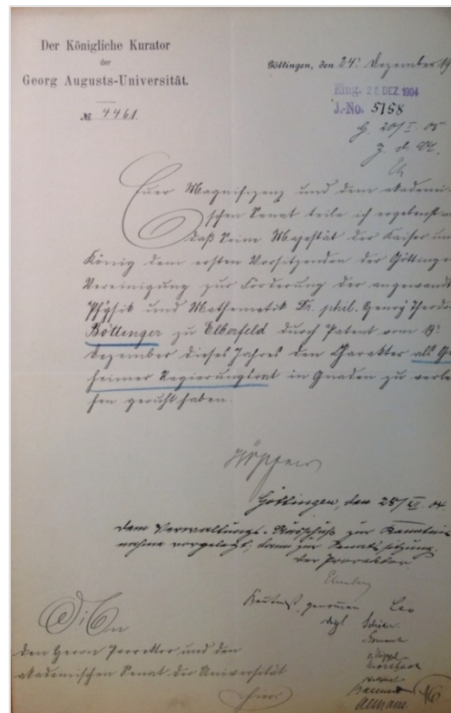 Der Königliche Kurator
der
Georg Augusts-Universität.
№ 4461
Göttingen, den 24. Dezember 19
Eing. 28 DEZ. 1904
J.-No. 5158
Euer Magnifizenz und dem akademi-
schen Senat teile ich ergebenst mit
daß Seine Majestät der Kaiser und
König dem ersten Vorsitzenden der Göttinger
Vereinigung zur Förderung der angewandten
Physik und Mathematik Dr. phil. Henry Theodor
Böttinger zu Elberfeld durch Patent vom 9.
Dezember dieses Jahres den Charakter als Ge-
heimer Regierungsrat in Gnaden zu verlei-
hen geruht haben.
Höpfner
Göttingen, den 28/XII. 04
Dem Verwaltungs-Ausschuß zur Kenntnis-
nahme vorgelegt, dann zur Senatssitzung.
Der Prorektor
Kenntnis genommen Leo
An
den Herrn Prorektor und den
akademischen Senat der Universität
hier